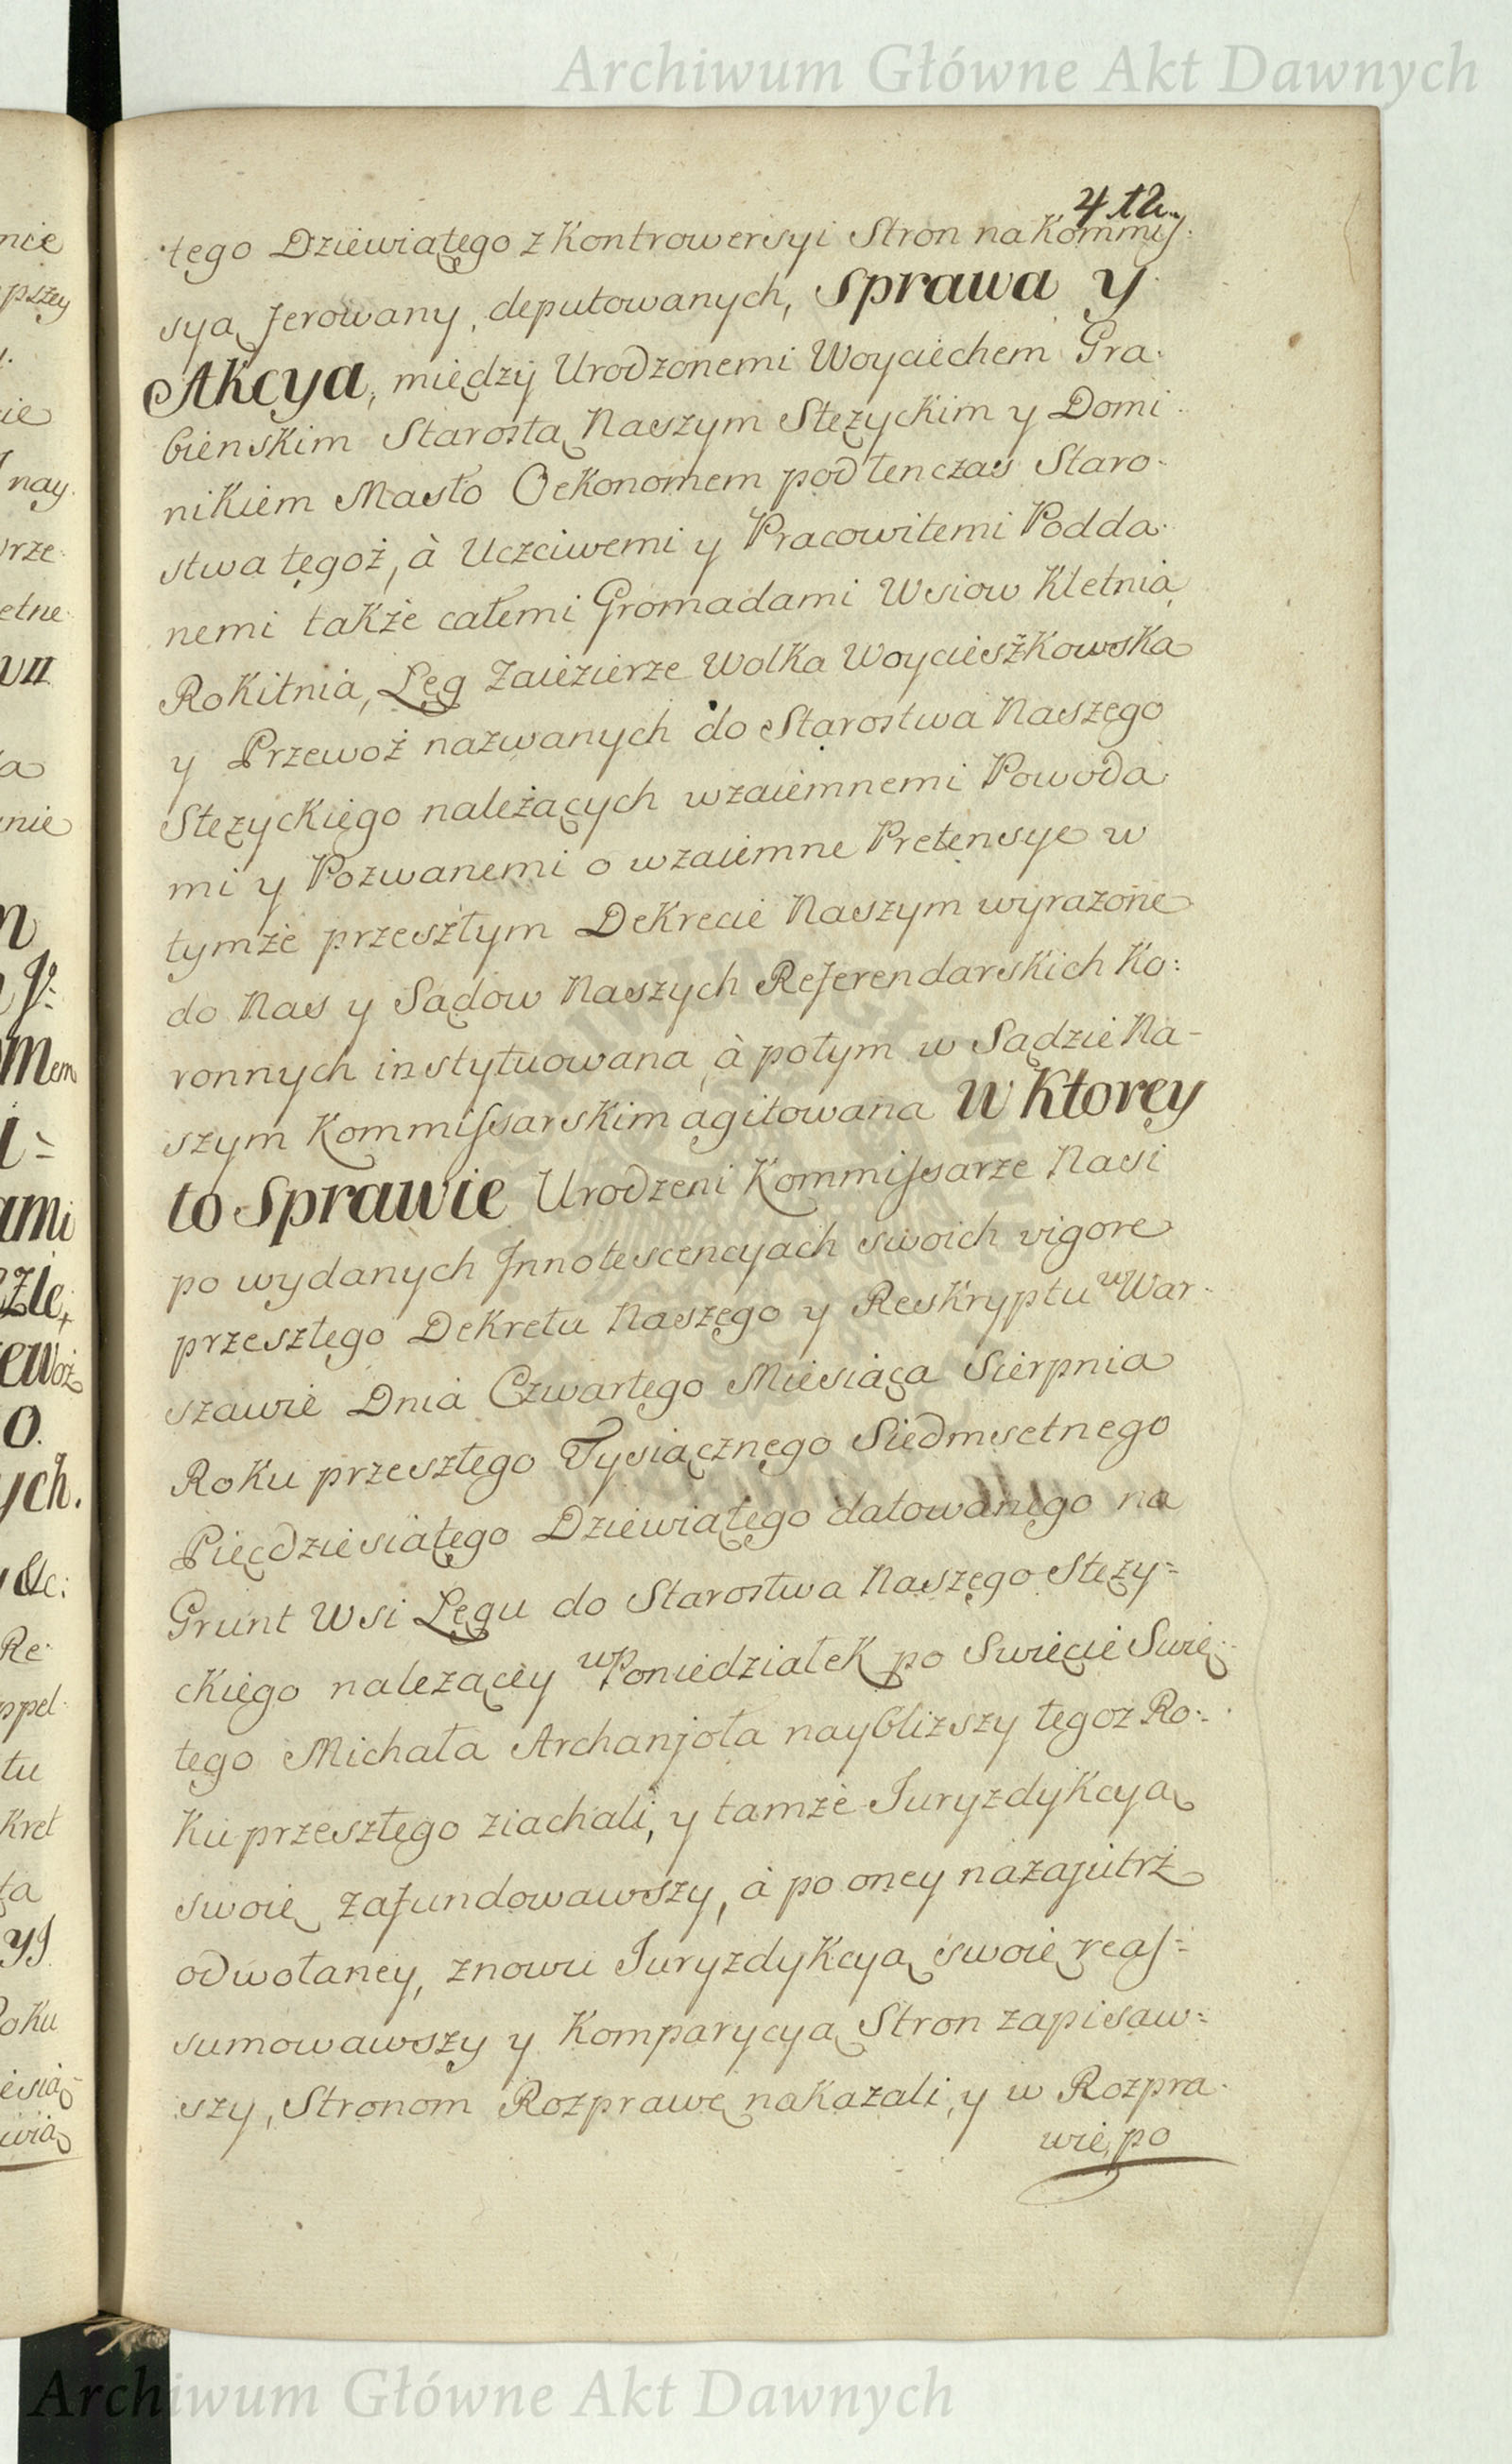 Archiwum Główne Akt Dawnych
412.
tego Dziewiątego z Kontrowersyi Stron na Kommis-
syą ferowany, deputowanych, Sprawa y
Akcya, między Urodzonemi Woyciechem Gra-
bienskim Starostą Naszym Stężyckim y Domi-
nikiem Masło Oekonomem podtenczas Staro-
stwa tegoż, à Uczciwemi y Pracowitemi Podda-
nemi także całemi Gromadami Wsiow Kletnia
Rokitnia, Lęg Zaiezierze Wolka Woycieszkowska
y Przewoż nazwanych do Starostwa Naszego
Stężyckiego należących wzaiemnemi Powoda-
mi y Pozwanemi o wzaiemne Pretensye w
tymże przeszłym Dekrecie Naszym wyrażone
do Nas y Sądow Naszych Referendarskich Ko:
ronnych instytuowana, à potym w Sądzie Na-
szym Kommissarskim agitowana W Ktorey
to Sprawie Urodzeni Kommissarze Nasi
po wydanych Innotescencyach swoich vigore
przeszłego Dekretu Naszego y Reskryptu w War-
szawie Dnia Czwartego Miesiąca Sierpnia
Roku przeszłego Tysiącznego Siedmsetnego
Pięcdziesiątego Dziewiątego datowanego na
Grunt Wsi Lęgu do Starostwa Naszego Stęży=
ckiego nalezącey w Poniedziałek po Swięcie Swię-
tego Michała Archanjoła naybliższy tegoz Ro-
ku przeszłego ziachali, y tamże Juryzdykcyą
swoię zafundowawszy, à po oney nazajutrz
odwołaney, znowu Juryzdykcyą swoię reas=
sumowawszy y Komparycyą Stron zapisaw=
szy, Stronom Rozprawę nakazali, y w Rozpra-
wie, po
Archiwum Główne Akt Dawnych